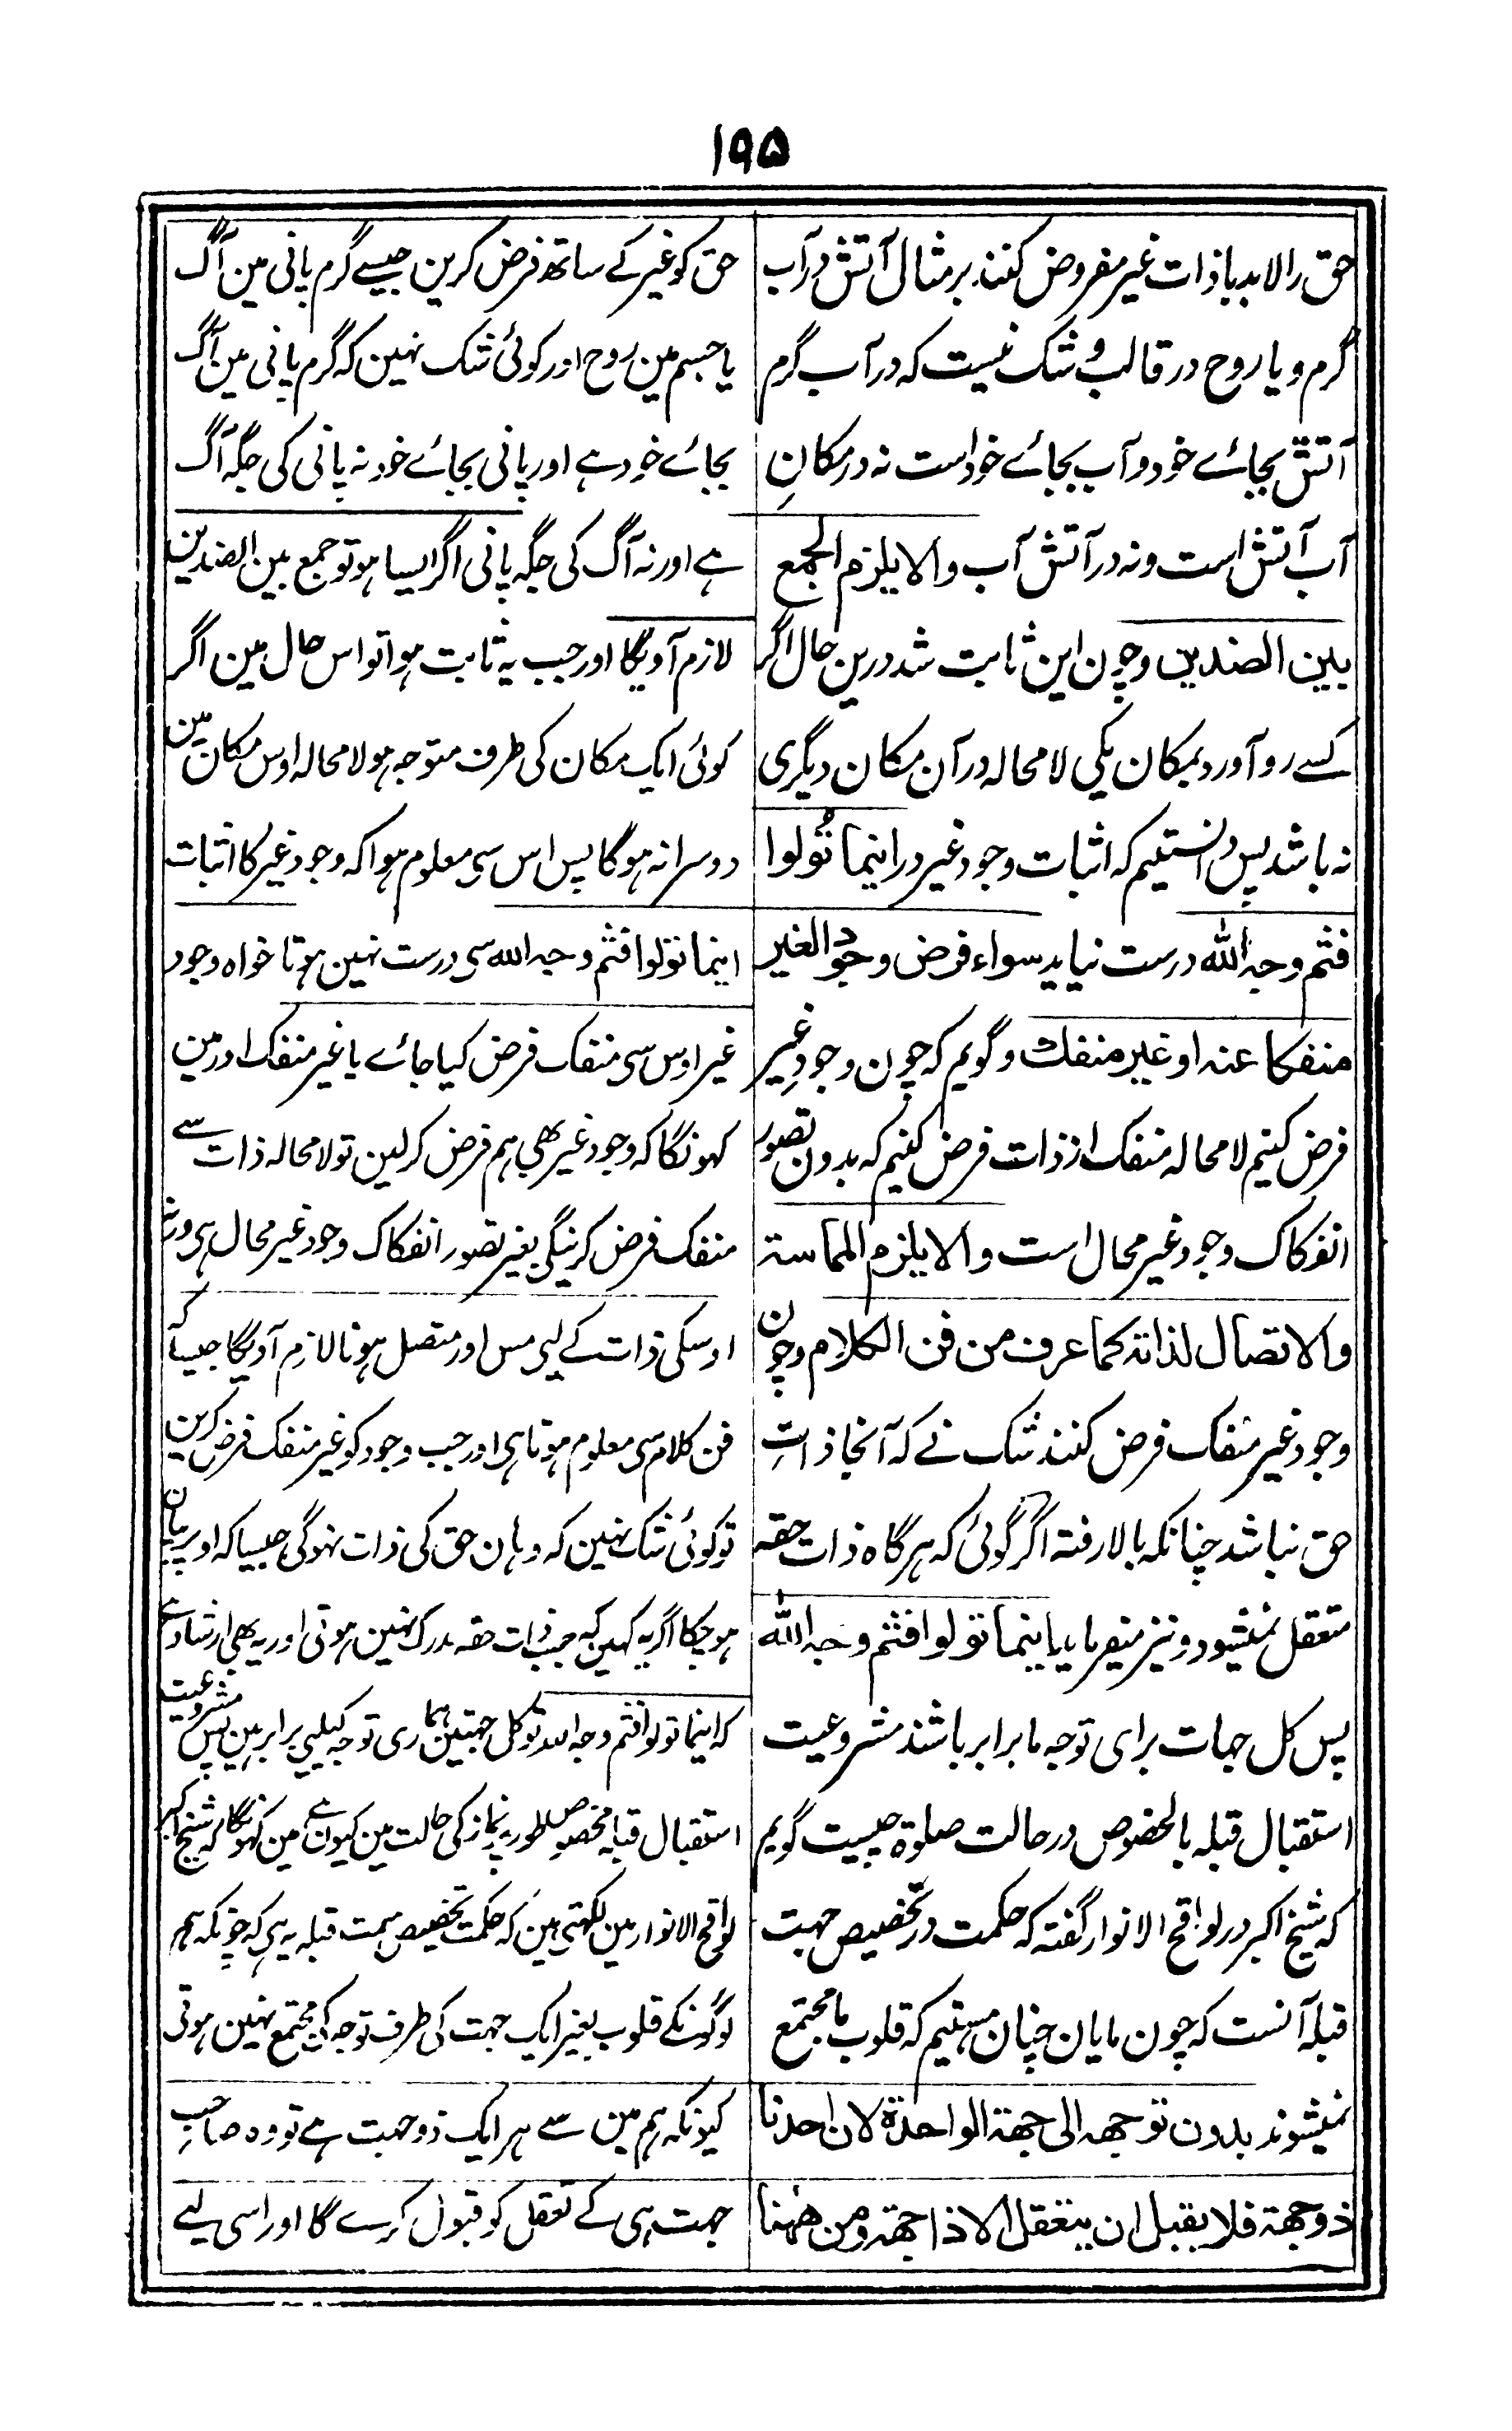 ۱۹۵
حق را لابد باذات غیر مفروض کنند بر مثال آتش در آب
گرم و یا روح در قالب و شک نیست که در آب گرم
آتش بجائے خود و آب بجائے خود است نه در مکانِ
آب آتش است و نه در آتش آب والا یلزم الجمع
بین الضدین و چون این ثابت شد درین حال اگر
کسے رو آورد بمکان یکی لا محاله در آن مکان دیگری
نه باشد پس دانستیم که اثبات وجود غیر در اینما تُولوا
فثم وجه الله درست نیاید سواء فرض وجود الغیر
منفکا عنه او غیر منفک و گویم که چون وجودِ غیر
فرض کنیم لا محاله منفک از ذات فرض کنیم که بدون تصور
انفکاک وجود غیر محال است والا یلزم المماسة
والاتصال لذاته کما عرف من فن الکلام و چون
وجود غیر منفک فرض کنند شک نے که آنجا ذاتِ
حق نباشد چنانکه بالا رفته اگر گوئی که هرگاه ذات حقه
متعقل نمیشود و نیز میفرماید اینما تولوا فثم وجه الله
پس کل جهات برای توجه ما برابر باشند مشروعیت
استقبال قبله بالخصوص در حالت صلوة چیست گویم
که شیخ اکبر در لواقح الانوار گفته که حکمت در تخصیص جهت
قبله آنست که چون مایان چنان هستیم که قلوب ما مجتمع
نمیشوند بدون توجهه الی جهة الواحدة لان احدنا
ذو جهة فلا یقبل ان یتعقل الا ذا جهة و من ههنا
حق کو غیر کے ساتھ فرض کرین جیسے گرم پانی مین آگ
یا جسم مین روح اور کوئی شک نہین کہ گرم پانی مین آگ
بجائے خود ہے اور پانی بجائے خود نہ پانی کی جگہ آگ
ہے اور نہ آگ کی جگہ پانی اگر ایسا ہو تو جمع بین الضدین
لازم آویگا اور جب یہ ثابت ہوا تو اس حال مین اگر
کوئی ایک مکان کی طرف متوجہ ہو لا محالہ اوس مکان مین
دوسرا نہ ہوگا پس اس سی معلوم ہوا کہ وجود غیر کا اثبات
اینما تولوا فثم وجہ اللہ سی درست نہین ہوتا خواہ وجود
غیر اوس سی منفک فرض کیا جائے یا غیر منفک اور مین
کہونگا کہ وجود غیر بھی ہم فرض کرلین تو لا محالہ ذات سے
منفک فرض کرینگی بغیر تصور انفکاک وجود غیر محال ہی ورنہ
اوسکی ذات کے لیی مس اور متصل ہونا لازم آویگا جیسا کہ
فن کلام سی معلوم ہوتا ہی اور جب وجود کو غیر منفک فرض کرین
تو کوئی شک نہین کہ وہان حق کی ذات نہوگی جیسا کہ اوپر بیان
ہو چکا اگر یہ کہین کہ جب ذات حقہ مدرک نہین ہوتی اور یہ بھی ارشاد ہے
کہ اینما تولوا فثم وجہ اللہ تو کل جہتین ہماری توجہ کیلیی برابر ہین پس مشروعیت
استقبال قبلہ مخصوص طور پر نماز کی حالت مین کیون ہے مین کہونگا کہ شیخ اکبر
لواقح الانوار مین لکھتی ہین کہ حکمت تخصیص سمت قبلہ یہ ہی کہ چونکہ ہم
لوگونکے قلوب بغیر ایک جہت کی طرف توجہ کی مجتمع نہین ہوتی
کیونکہ ہم مین سے ہر ایک ذو جہت ہے تو وہ صاحبِ
جہت ہی کے تعقل کو قبول کرے گا اور اسی لیے